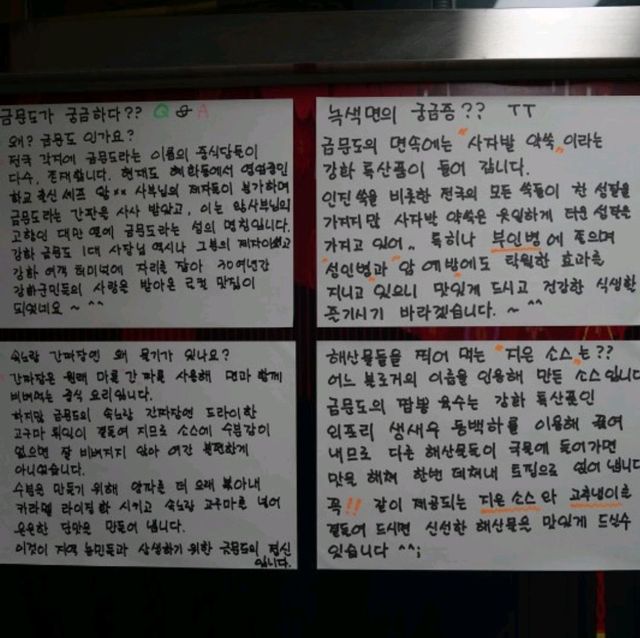 금문도가 궁금하다?? Q & A
왜? 금문도 인가요?
전국 각지에 금문도라는 이름의 중식당들이
다수, 존재합니다. 현재도 혜화동에서 영업중인
사부님의 제자들이 불가하며
금문도라는 간판을 사사 받았고, 이는
고향인 대만 옆에 금문도라는 섬의 명칭입니다.
강화 금문도 1대 사장님 역시나 그분의 제자이셨고
강화 여객 터미널에 자리를 잡아 30여년간
강화군민들의 사랑을 받아온 로컬 맛집이
되었네요 ~ ^^
녹색면의 궁금증?? ㅠㅠ
금문도의 면속에는 "사자발 약쑥" 이라는
강화 특산품이 들어 갑니다.
인진 쑥을 비롯한 전국의 모든 쑥들이 찬 성질을
가지지만 사자발 약쑥은 유일하게 더운 성질을
가지고 있어.. 특히나 부인병에 좋으며
"성인병과" "암 예방에도 탁월한 효과를
지니고 있으니 맛있게 드시고 건강한 식생활
즐기시기 바라겠습니다. ~ ^^
속노랑 간짜장엔 왜 물기가 있나요?
간짜장은 원래 마를 간 짜를 사용해 면과 함께
비벼먹는 중식 요리입니다.
하지만 금문도의 속노랑 간짜장엔 드라이한
고구마 튀김이 곁들여 지므로 소스에 수분감이
없으면 잘 비벼지지 않아 여간 불편한게
아니였습니다.
수분을 만들기 위해 양파를 더 오래 볶아내
카라멜 라이징화 시키고 속노랑 고구마를 넣어
은은한 단맛을 만들어 냅니다.
이것이 지역 농민들과 상생하기 위한 금문도의 정신
입니다.
해산물들을 찍어 먹는 "지은 소스"는??
어느 블로거의 이름을 인용해 만든 소스 입니다
금문도의 짬뽕 육수는 강화 특산품인
인포리 생새우 동백하를 이용해 끓여
내므로 다른 해산물들이 국물에 들어가면
맛을 해쳐 한번 데쳐내 토핑으로 얹어 냅니다
꼭!! 같이 제공되는 지은 소스와 고추냉이를
곁들여 드시면 신선한 해산물을 맛있게 드실수
있습니다 ^^;